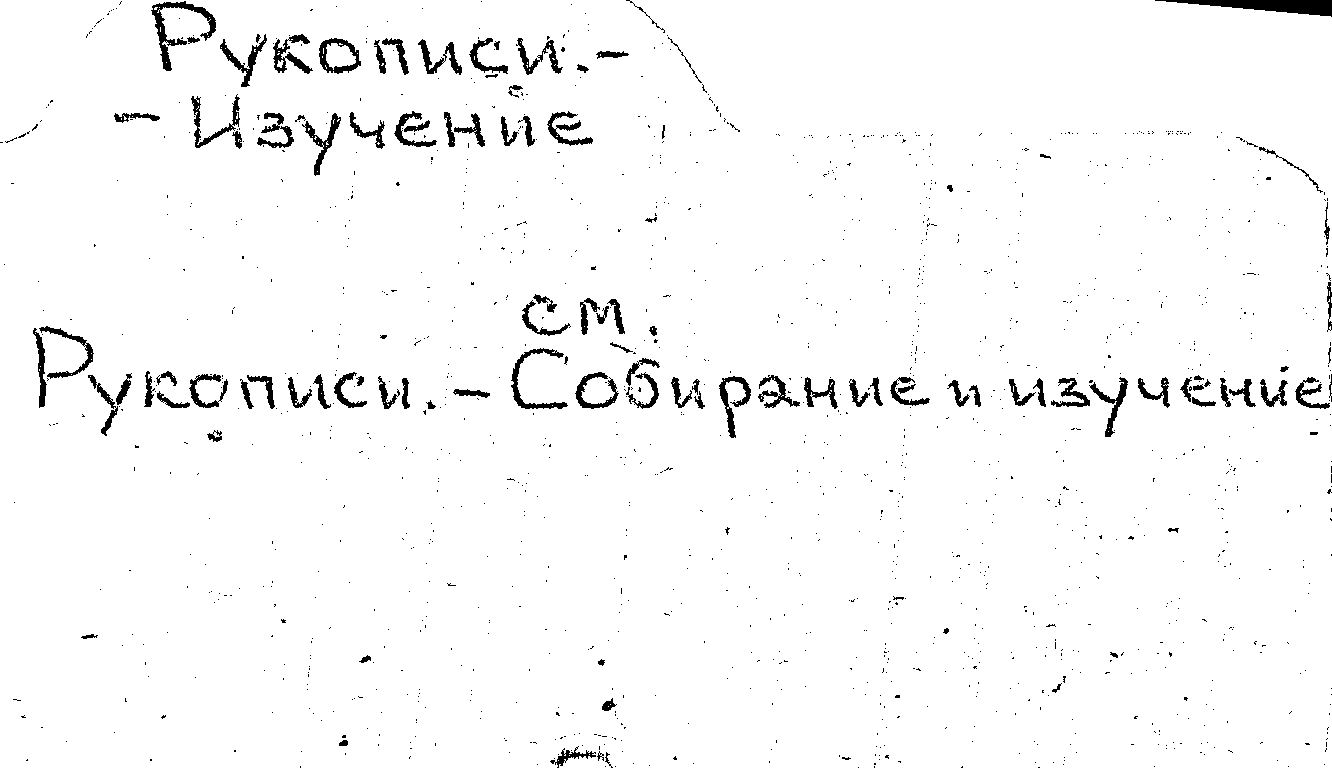 Рукописи.-
- Изучение
см.
Рукописи. - Собирание и изучение